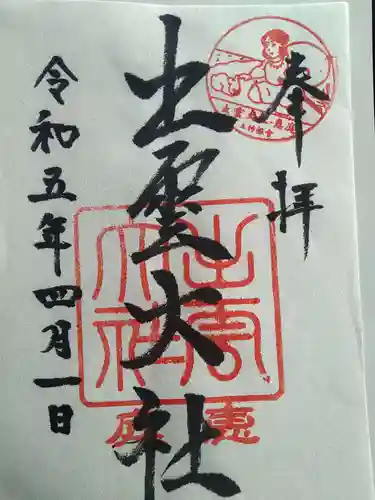 奉拝
出雲大社
出雲大社
恵庭
令和五年四月一日